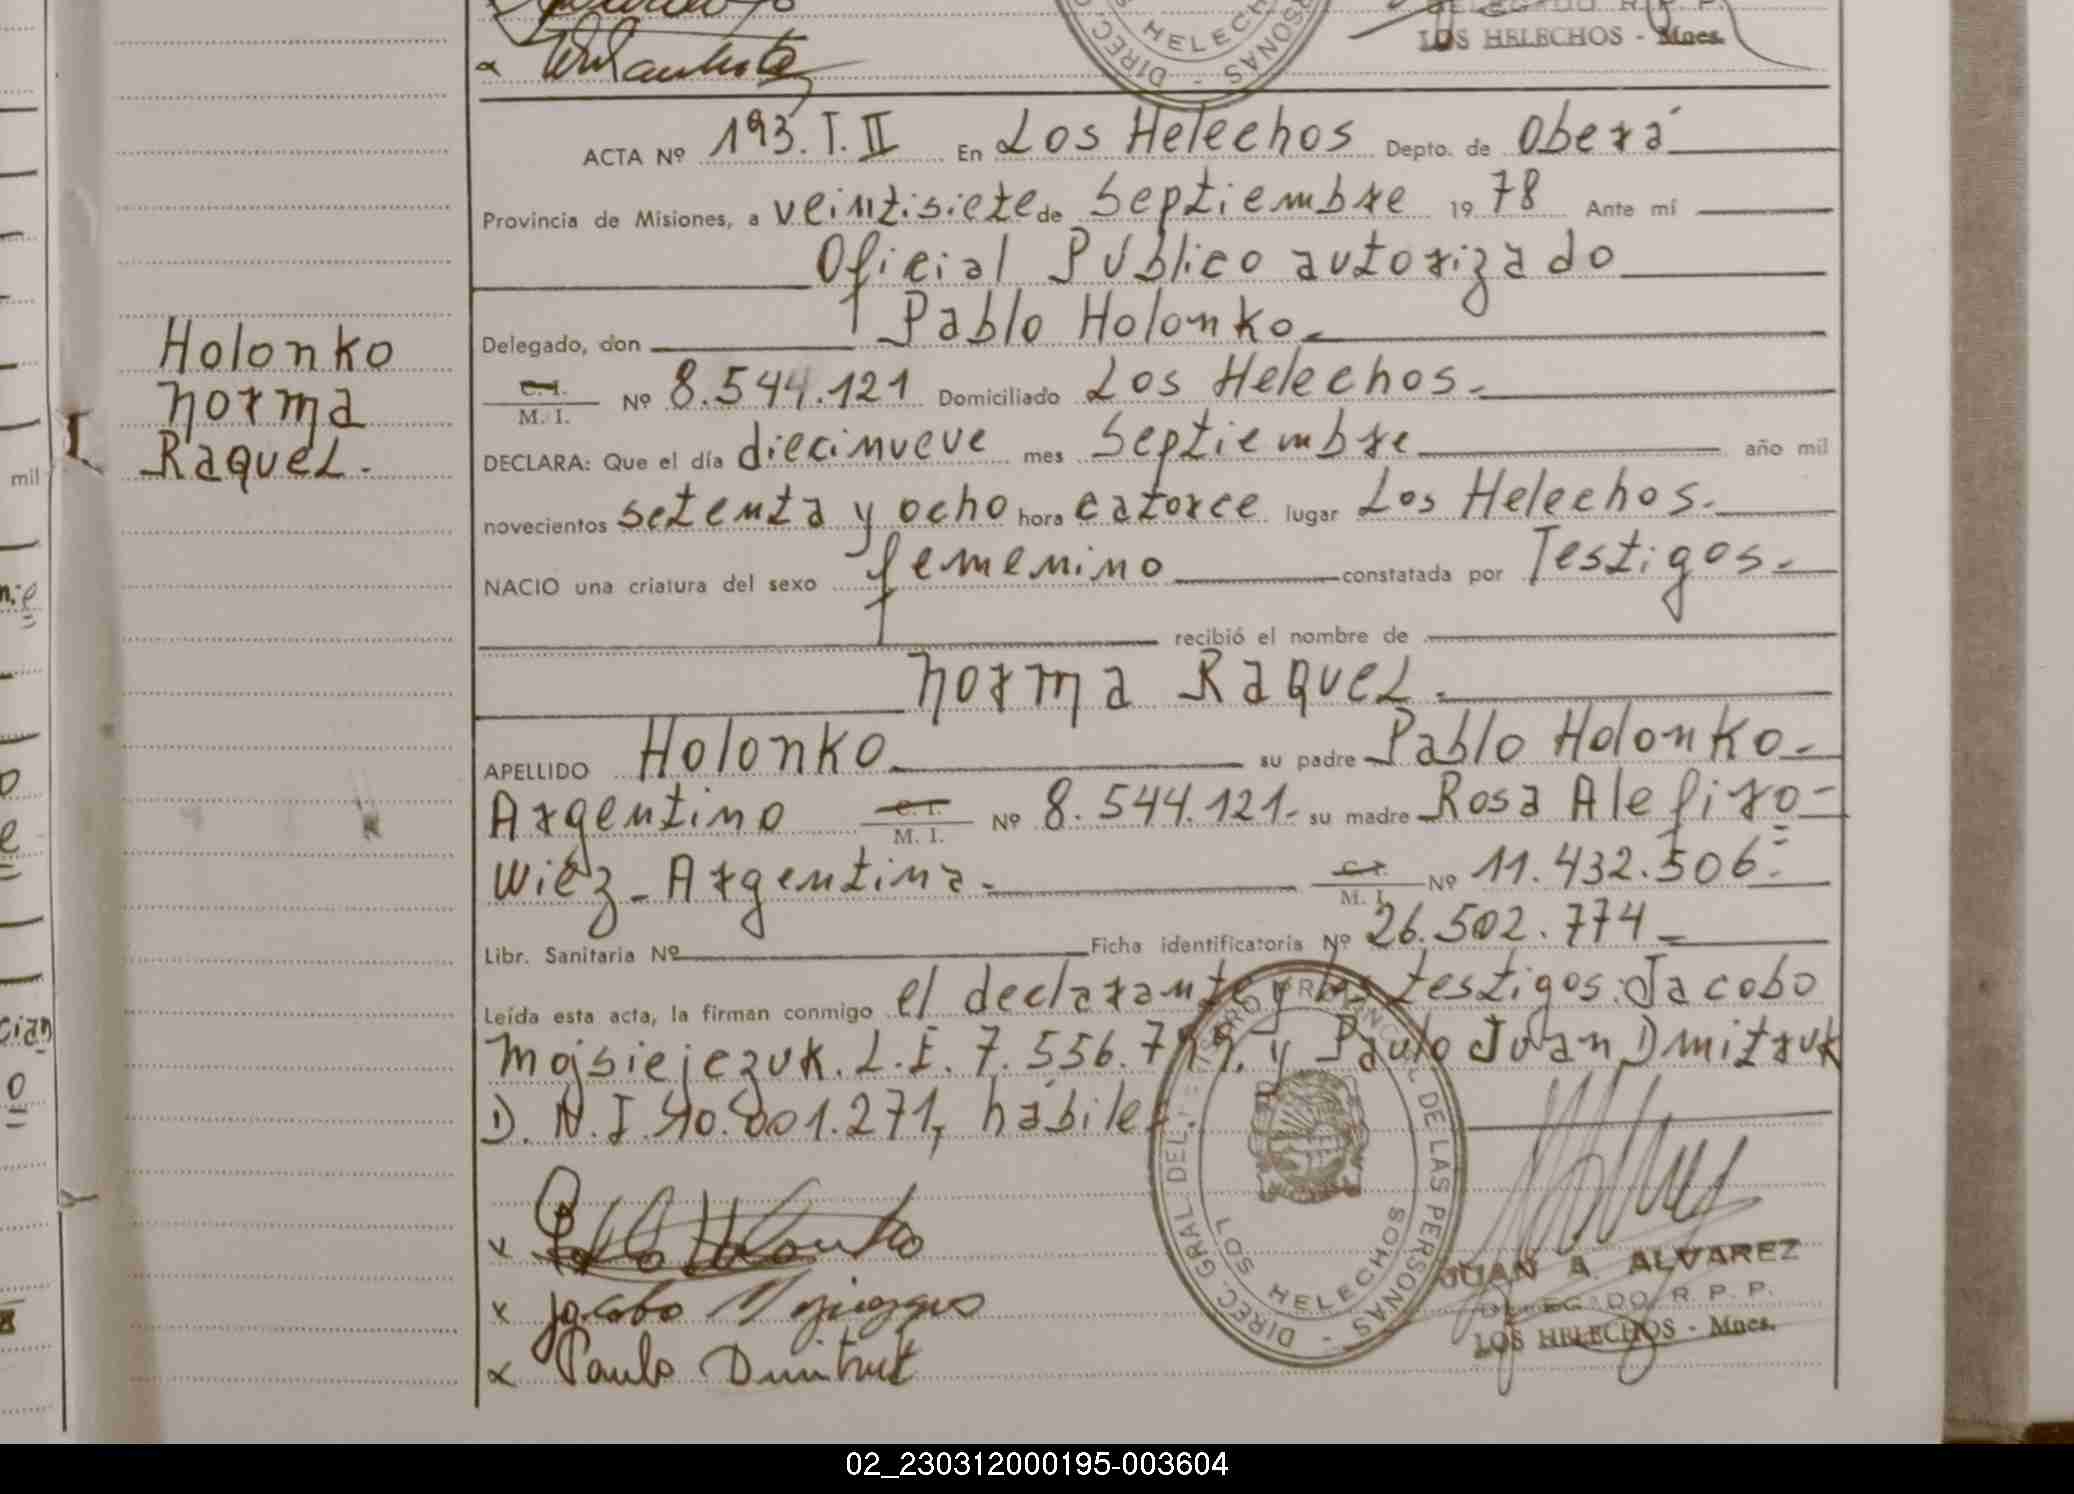 LOS HELECHOS - Mnes.
DIREC.
HELECHOS
PERSONAS
ACTA Nº 193.T.II En Los Helechos Depto. de Oberá
Provincia de Misiones, a veintisiete de Septiembre 19 78 Ante mí
Oficial Público autorizado
Delegado, don Pablo Holonko.
C.I.
M. I. Nº 8.544.121 Domiciliado Los Helechos.
Holonko
Norma
Raquel.
DECLARA: Que el día diecinueve mes Septiembre año mil
novecientos setenta y ocho hora catorce lugar Los Helechos.
NACIO una criatura del sexo femenino constatada por Testigos.
recibió el nombre de
Norma Raquel.
APELLIDO Holonko su padre Pablo Holonko.
Argentino C. I. M. I. Nº 8.544.121. su madre Rosa Alefiro=
wiez. Argentina. C.I. M. I. Nº 11.432.506.
Libr. Sanitaria Nº Ficha identificatoria Nº 26.502.774
Leída esta acta, la firman conmigo el declarante y los testigos: Jacobo
Mojsiejczuk. L.E. 7.556. y Paulo Juan Dmitruk
D.N.I. 10.001.271, hábiles.
DIREC. GRAL DEL REGISTRO PROVINCIAL DE LAS PERSONAS
LOS HELECHOS
x Pablo Holonko
x Jacobo
x Paulo Dmitruk
JUAN A. ALVAREZ
DELEGADO R. P. P.
LOS HELECHOS - Mnes.
02_230312000195-003604